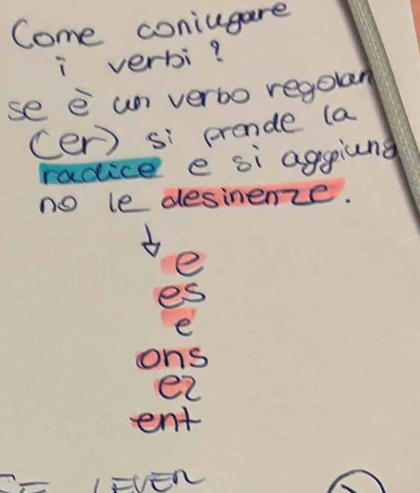 Come coniugare
i verbi?
se è un verbo regolar
(er) si prende la
radice e si aggiung
no le desinenze.
e
es
e
ons
ez
ent
SE LEVER